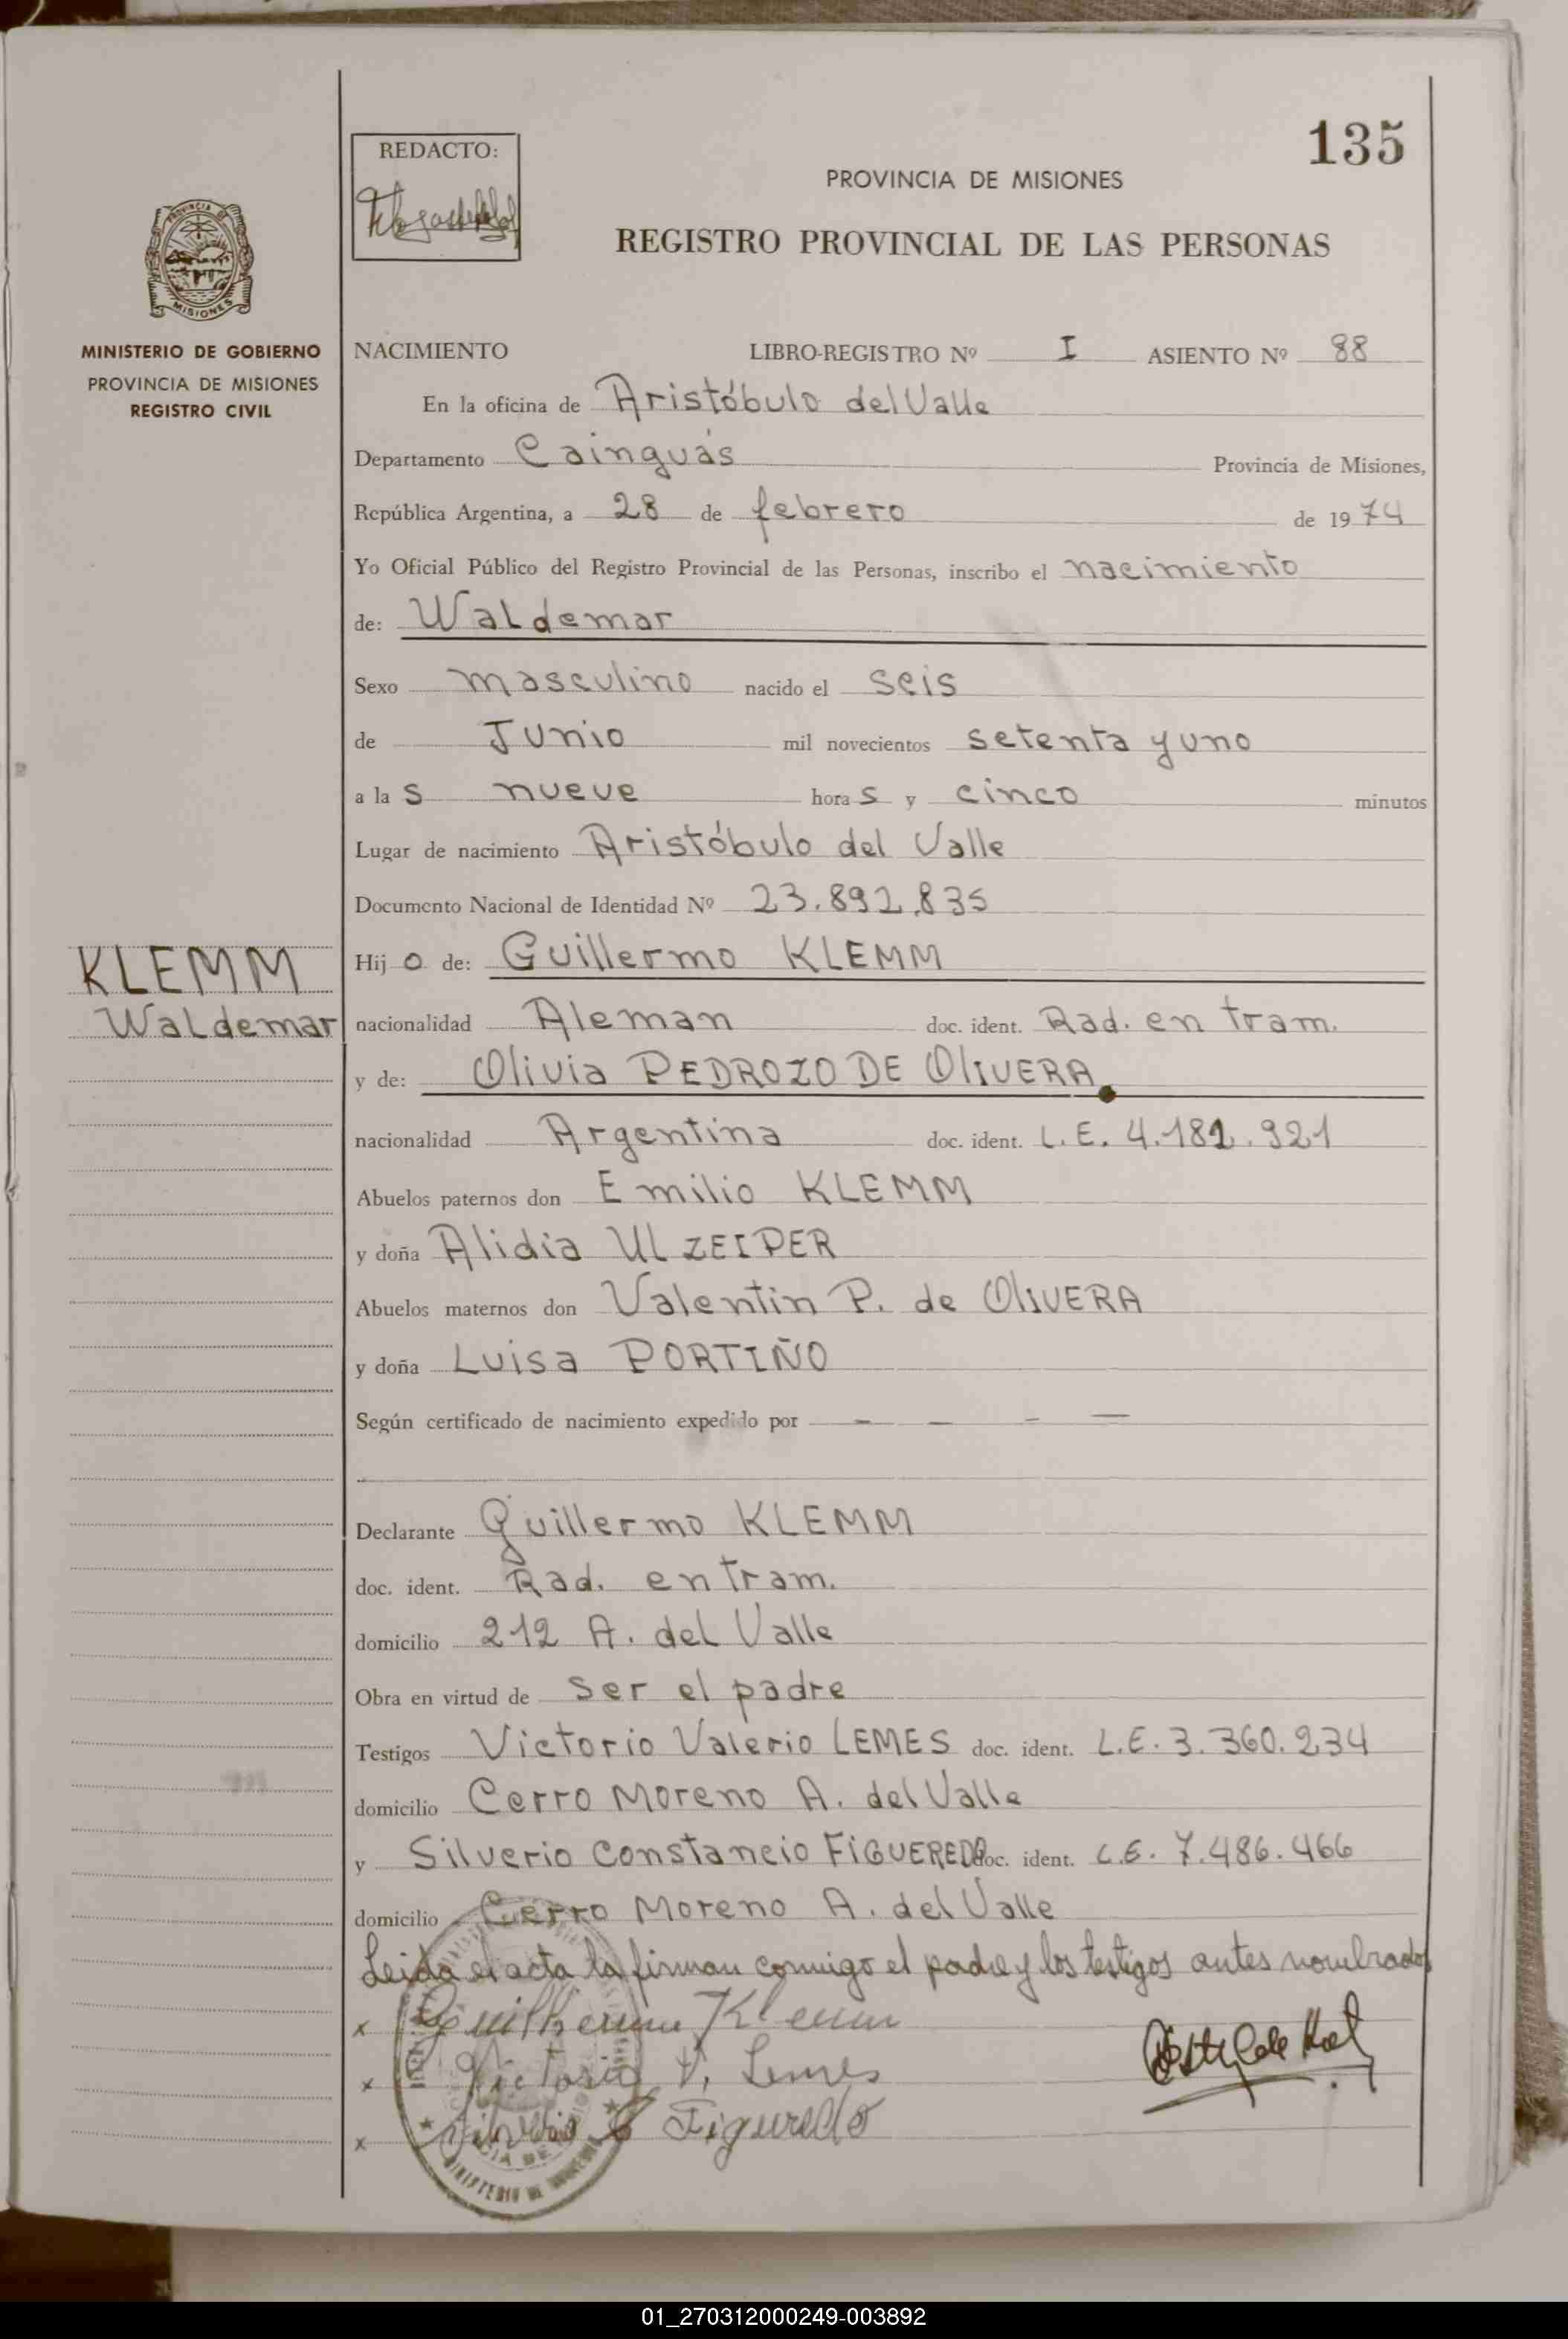 135
REDACTO:
PROVINCIA DE MISIONES
REGISTRO PROVINCIAL DE LAS PERSONAS
MINISTERIO DE GOBIERNO
PROVINCIA DE MISIONES
REGISTRO CIVIL
NACIMIENTO LIBRO-REGISTRO Nº I ASIENTO Nº 88
En la oficina de Aristóbulo del Valle
Departamento Cainguás Provincia de Misiones,
República Argentina, a 28 de febrero de 1974
Yo Oficial Público del Registro Provincial de las Personas, inscribo el nacimiento
de: Waldemar
Sexo masculino nacido el seis
de Junio mil novecientos setenta y uno
a las nueve horas y cinco minutos
Lugar de nacimiento Aristóbulo del Valle
Documento Nacional de Identidad Nº 23.892.835
KLEMM
Waldemar
Hijo de: Guillermo KLEMM
nacionalidad Aleman doc. ident. Rad. en tram.
y de: Olivia PEDROZO DE OlIVERA
nacionalidad Argentina doc. ident. L.E. 4.182.921
Abuelos paternos don Emilio KLEMM
y doña Alidia ULZEIPER
Abuelos maternos don Valentin P. de OlIVERA
y doña Luisa PORTIÑO
Según certificado de nacimiento expedido por - - - —
Declarante Guillermo KLEMM
doc. ident. Rad. en Tram.
domicilio 212 A. del Valle
Obra en virtud de ser el padre
Testigos Victorio Valerio LEMES doc. ident. L.E. 3.360.234
domicilio Cerro Moreno A. del Valle
y Silverio Constancio FIGUEREDO doc. ident. L.E. 7.486.466
domicilio Cerro Moreno A. del Valle
Leida el acta la firman conmigo el padre y los testigos antes nombrados
x Guilherme Klemm
x Victorio V. Lemes
x Silverio C Figueredo
01_270312000249-003892